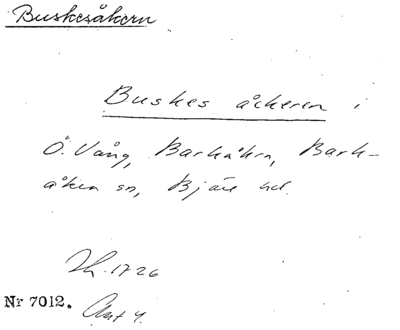 Buskesåkern
Buskes åkeren i
Ö. Vång, Barkåkra, Bark-
åkra sn, Bjäre hd.
Jb. 1726
Nr 7012. Akt 4.